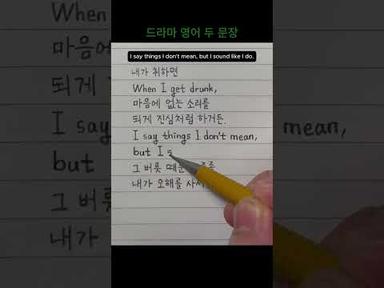 드라마 영어 두 문장
I say things I don't mean, but I sound like I do.
내가 취하면
When I get drunk,
마음에 없는 소리를
되게 진실처럼 하거든.
I say things I don't mean,
but I s
그 버릇 때문
내가 오해를 사
마음에
되게 진
I say
but
그 버
내가